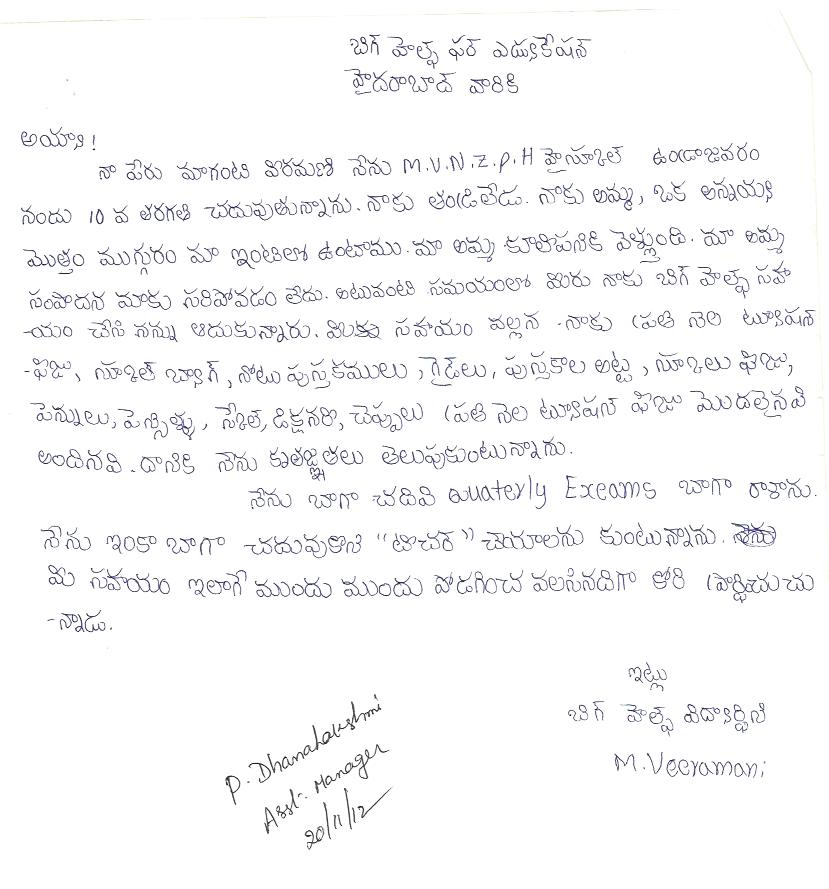 బిగ్ హెల్ప్ ఫర్ ఎడ్యుకేషన్
హైదరాబాద్ వారికి
అయ్యా!
నా పేరు మాగంటి వీరమణి నేను M.V.N.Z.P.H హైస్కూల్ ఉండ్రాజవరం
నందు 10 వ తరగతి చదువుతున్నాను. నాకు తండ్రిలేడు. నాకు అమ్మ, ఒక అన్నయ్య
మొత్తం ముగ్గురం మా ఇంటిలో ఉంటాము. మా అమ్మ కూలిపనికి వెళ్ల్తుంది. మా అమ్మ
సంపాదన మాకు సరిపోవడం లేదు. అటువంటి సమయంలో మీరు నాకు బిగ్ హెల్ప్ సహా
-యం చేసి నన్ను ఆదుకున్నారు. సహాయం వల్లన నాకు ప్రతి నెల ట్యూషన్
-ఫీజు, స్కూల్ బ్యాగ్, నోటు పుస్తకములు, గైడ్‌లు, పుస్తకాల అట్ట, స్కూలు ఫీజు,
పెన్నులు, పెన్సిళ్ళు, స్కేల్, డిక్షనరీ, చెప్పులు ప్రతి నెల ట్యూషన్ ఫీజు మొదలైనవి
అందినవి. దానికి నేను కృతజ్ఞతలు తెలుపుకుంటున్నాను.
నేను బాగా చదివి Quaterly Exeams బాగా రాశాను.
నేను ఇంకా బాగా చదువుకొని "టీచర్" చేయాలను కుంటున్నాను.
మీ సహాయం ఇలాగే ముందు ముందు పొడగించ వలసినదిగా కోరి ప్రార్థించుచు
-న్నాడు.
ఇట్లు
బిగ్ హెల్ప్ విద్యార్థిని
M.Veeramani
P. Dhanalakshmi
Asst. Manager
20/11/12